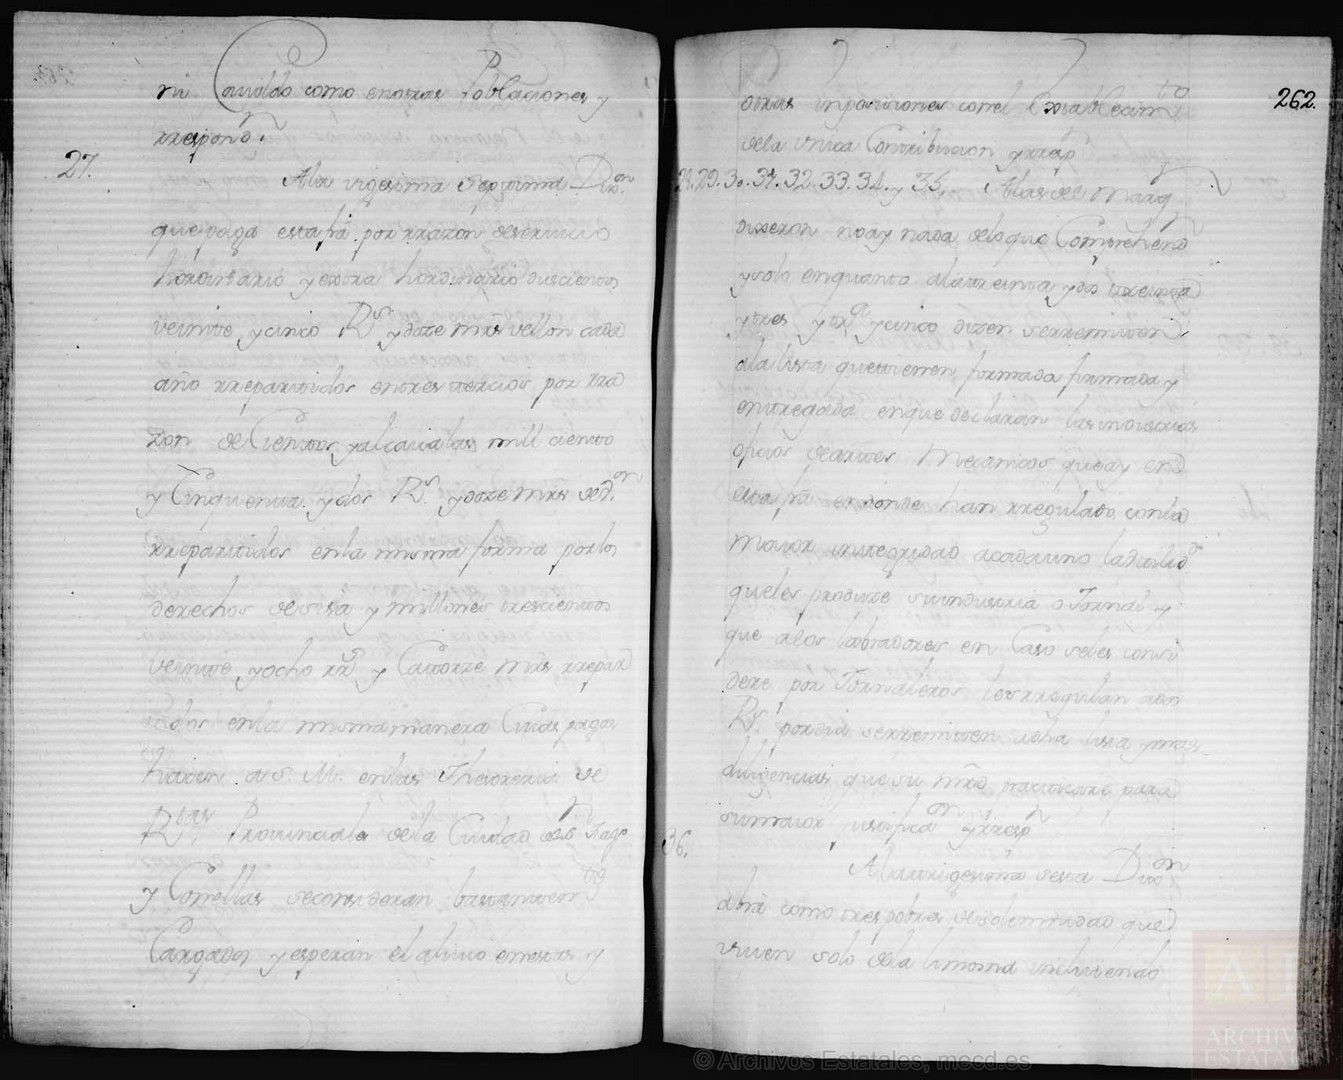 ni Cauildo como enotras Poblaciones y
rrespond.n
27. Ala vigesima septtima Dix.on
que paga esta fra. por rrazon de seruicio
hordinario y extra hordinario duscientos
veintte y cinco Rs. y doze mrs vellon cada
año rrepartidos en tres tercios por rra
zon de Cientos y alcaualas mill ciento
y Cinquenta y dos Rs. y doze mrs de v.on
rrepartidos en la misma forma por los
derechos de sisa y millones trescientos
veintte y ocho rrs. y Catorze mrs rrepar
tidos en la misma manera Cuias pagas
hazen a S. M. en las Thesoreria de
Rtas. Provinciales de la Ciudad de Santiago
y Con ellas se consideran bastantem.te
Cargados y esperan el aliuio en estas y
262.
otras ynposiciones con el Establecim.to
de la vnica Contribucion y rresp.n
28. 29. 30. 31. 32. 33. 34. y 35. Alas del Marg.n
dixeron no ay nada de lo que Comprehend.n
y solo en quanto ala treinta y dos treinta
y tres y tr.a y cinco dizen se rremiten
ala lista que tienen formada firmada y
entregada en que declaran las industrias
oficios de artes Mecanicos que ay en
esta fra. en donde han rregulado con la
maior integridad a cada uno la utilid.d
que les produze su industria o Jornal y
que a los labradores en Caso se les consi
dere por Jornaleros les rregulan a dos
Rs. por dia se rremiten a dha lista y mas
diligencias que su mrd. practicare para
su maior justifica.on y rresp.n
36. Ala trigesima sesta Dix.on
abra como tres pobres de solemnidad que
viuen solo de la limosna incluiendo
© Archivos Estatales, mecd.es
ARCHIV
ESTATAL